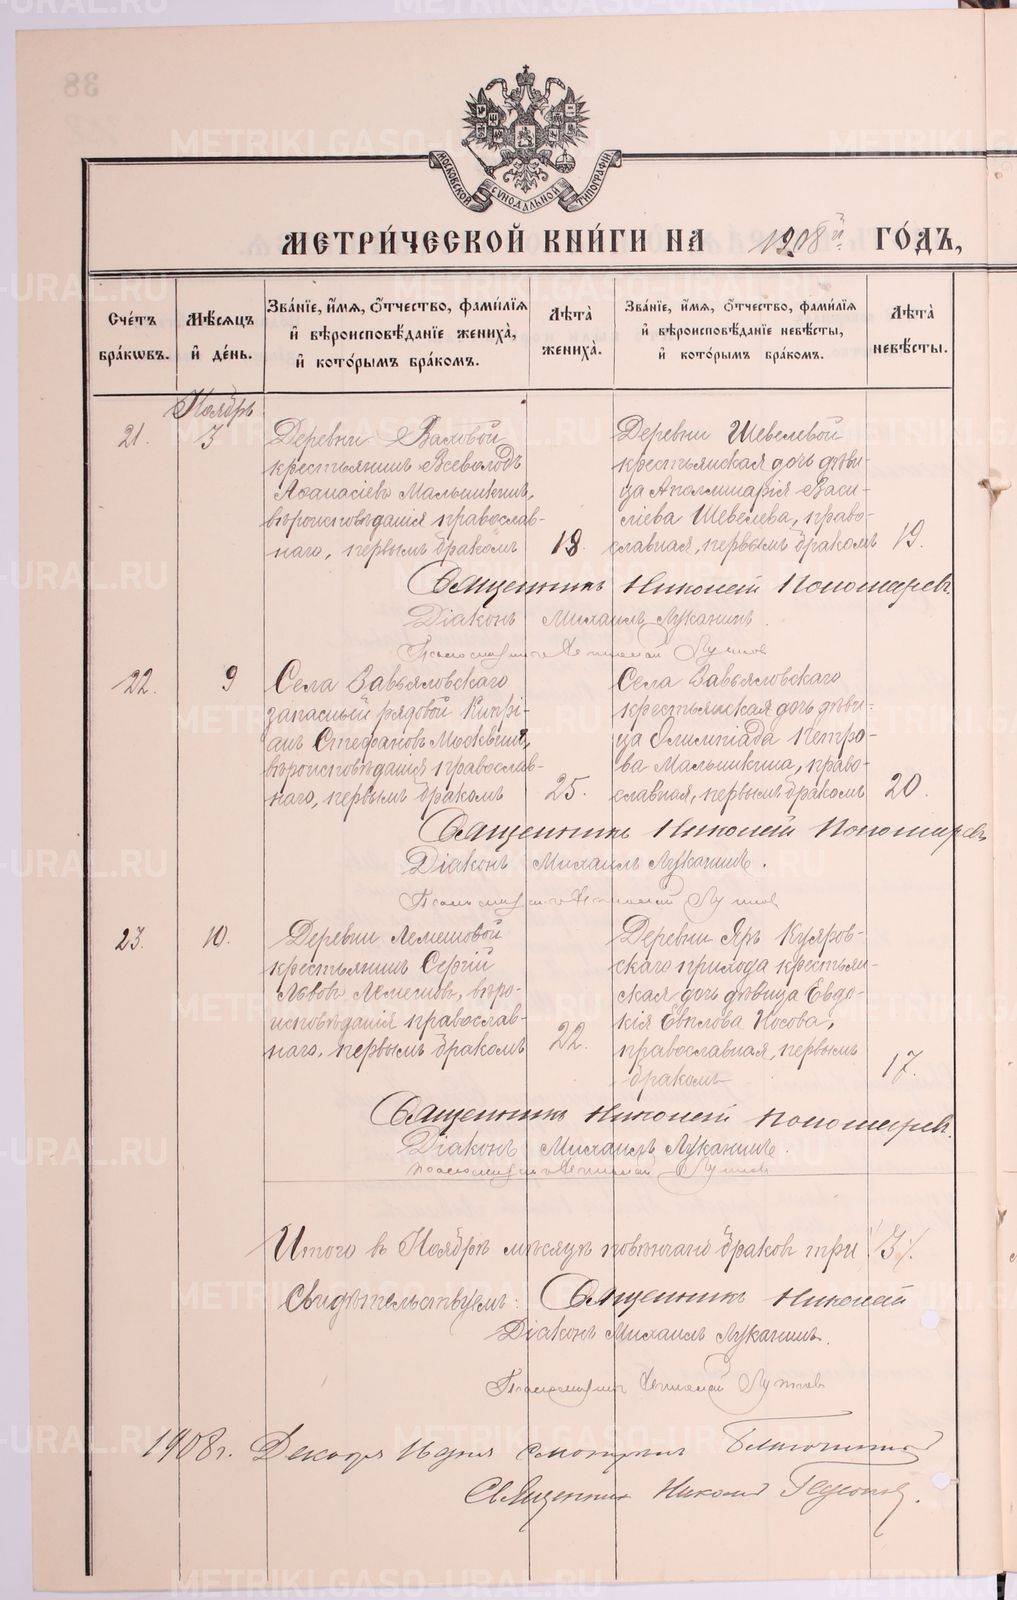 МОСКОВСКОЙ СѴНОДАЛЬНОЙ ТИПОГРАФІИ
МЕТРИ́ЧЕСКОЙ КНИ́ГИ НА 1908й ГО́ДЪ,
Сче́тъ бра́кωвъ.
Мѣ́сяцъ и҆ де́нь.
Зва́нїе, и҆́мѧ, ѻ҆́тчество, фами́лїѧ
и҆ вѣроисповѣ́данїе жениха̀,
и҆ кото́рымъ бра́комъ.
Лѣ́та̀ жениха̀.
Зва́нїе, и҆́мѧ, ѻ҆́тчество, фами́лїѧ
и҆ вѣроисповѣ́данїе невѣ́сты,
и҆ кото́рымъ бра́комъ.
Лѣ́та̀ невѣ́сты.
Ноябрь
21.
3
Деревни Валовой
крестьянинъ Всеволодъ
Аѳанасіевъ Мальшкинъ,
вѣроисповѣданія православ-
наго, первымъ бракомъ
18.
Деревни Шевелевой
крестьянская дочь дѣви-
ца Аполлинарія Васи-
ліева Шевелева, право-
славная, первымъ бракомъ
19.
Священникъ Николай Пономаревъ
Діаконъ Михаилъ Луканинъ.
22.
9
Села Завьяловскаго
запасный рядовой Кипрі-
анъ Стефановъ Москвинъ,
вѣроисповѣданія православ-
наго, первымъ бракомъ
25.
Села Завьяловскаго
крестьянская дочь дѣви-
ца Олимпіада Петро-
ва Мальшкина, право-
славная, первымъ бракомъ
20.
Священникъ Николай Пономаревъ
Діаконъ Михаилъ Луканинъ.
23.
10.
Деревни Лемешовой
крестьянинъ Сергій
Львовъ Лемешовъ, вѣро-
исповѣданія православ-
наго, первымъ бракомъ
22.
Деревни Яръ Куяров-
скаго прихода крестьян-
ская дочь дѣвица Евдо-
кія Носова,
православная, первымъ
бракомъ
17.
Священникъ Николай Пономаревъ.
Діаконъ Михаилъ Луканинъ.
Итого въ Ноябрѣ мѣсяцѣ повѣнчано браковъ три /3/.
Свидѣтельствуемъ: Священникъ Николай
Діаконъ Михаилъ Луканинъ.
1908 г. Декабря 16 дня смотрѣлъ Благочинный
Священникъ Николай
METRIKI.GASO-URAL.RU